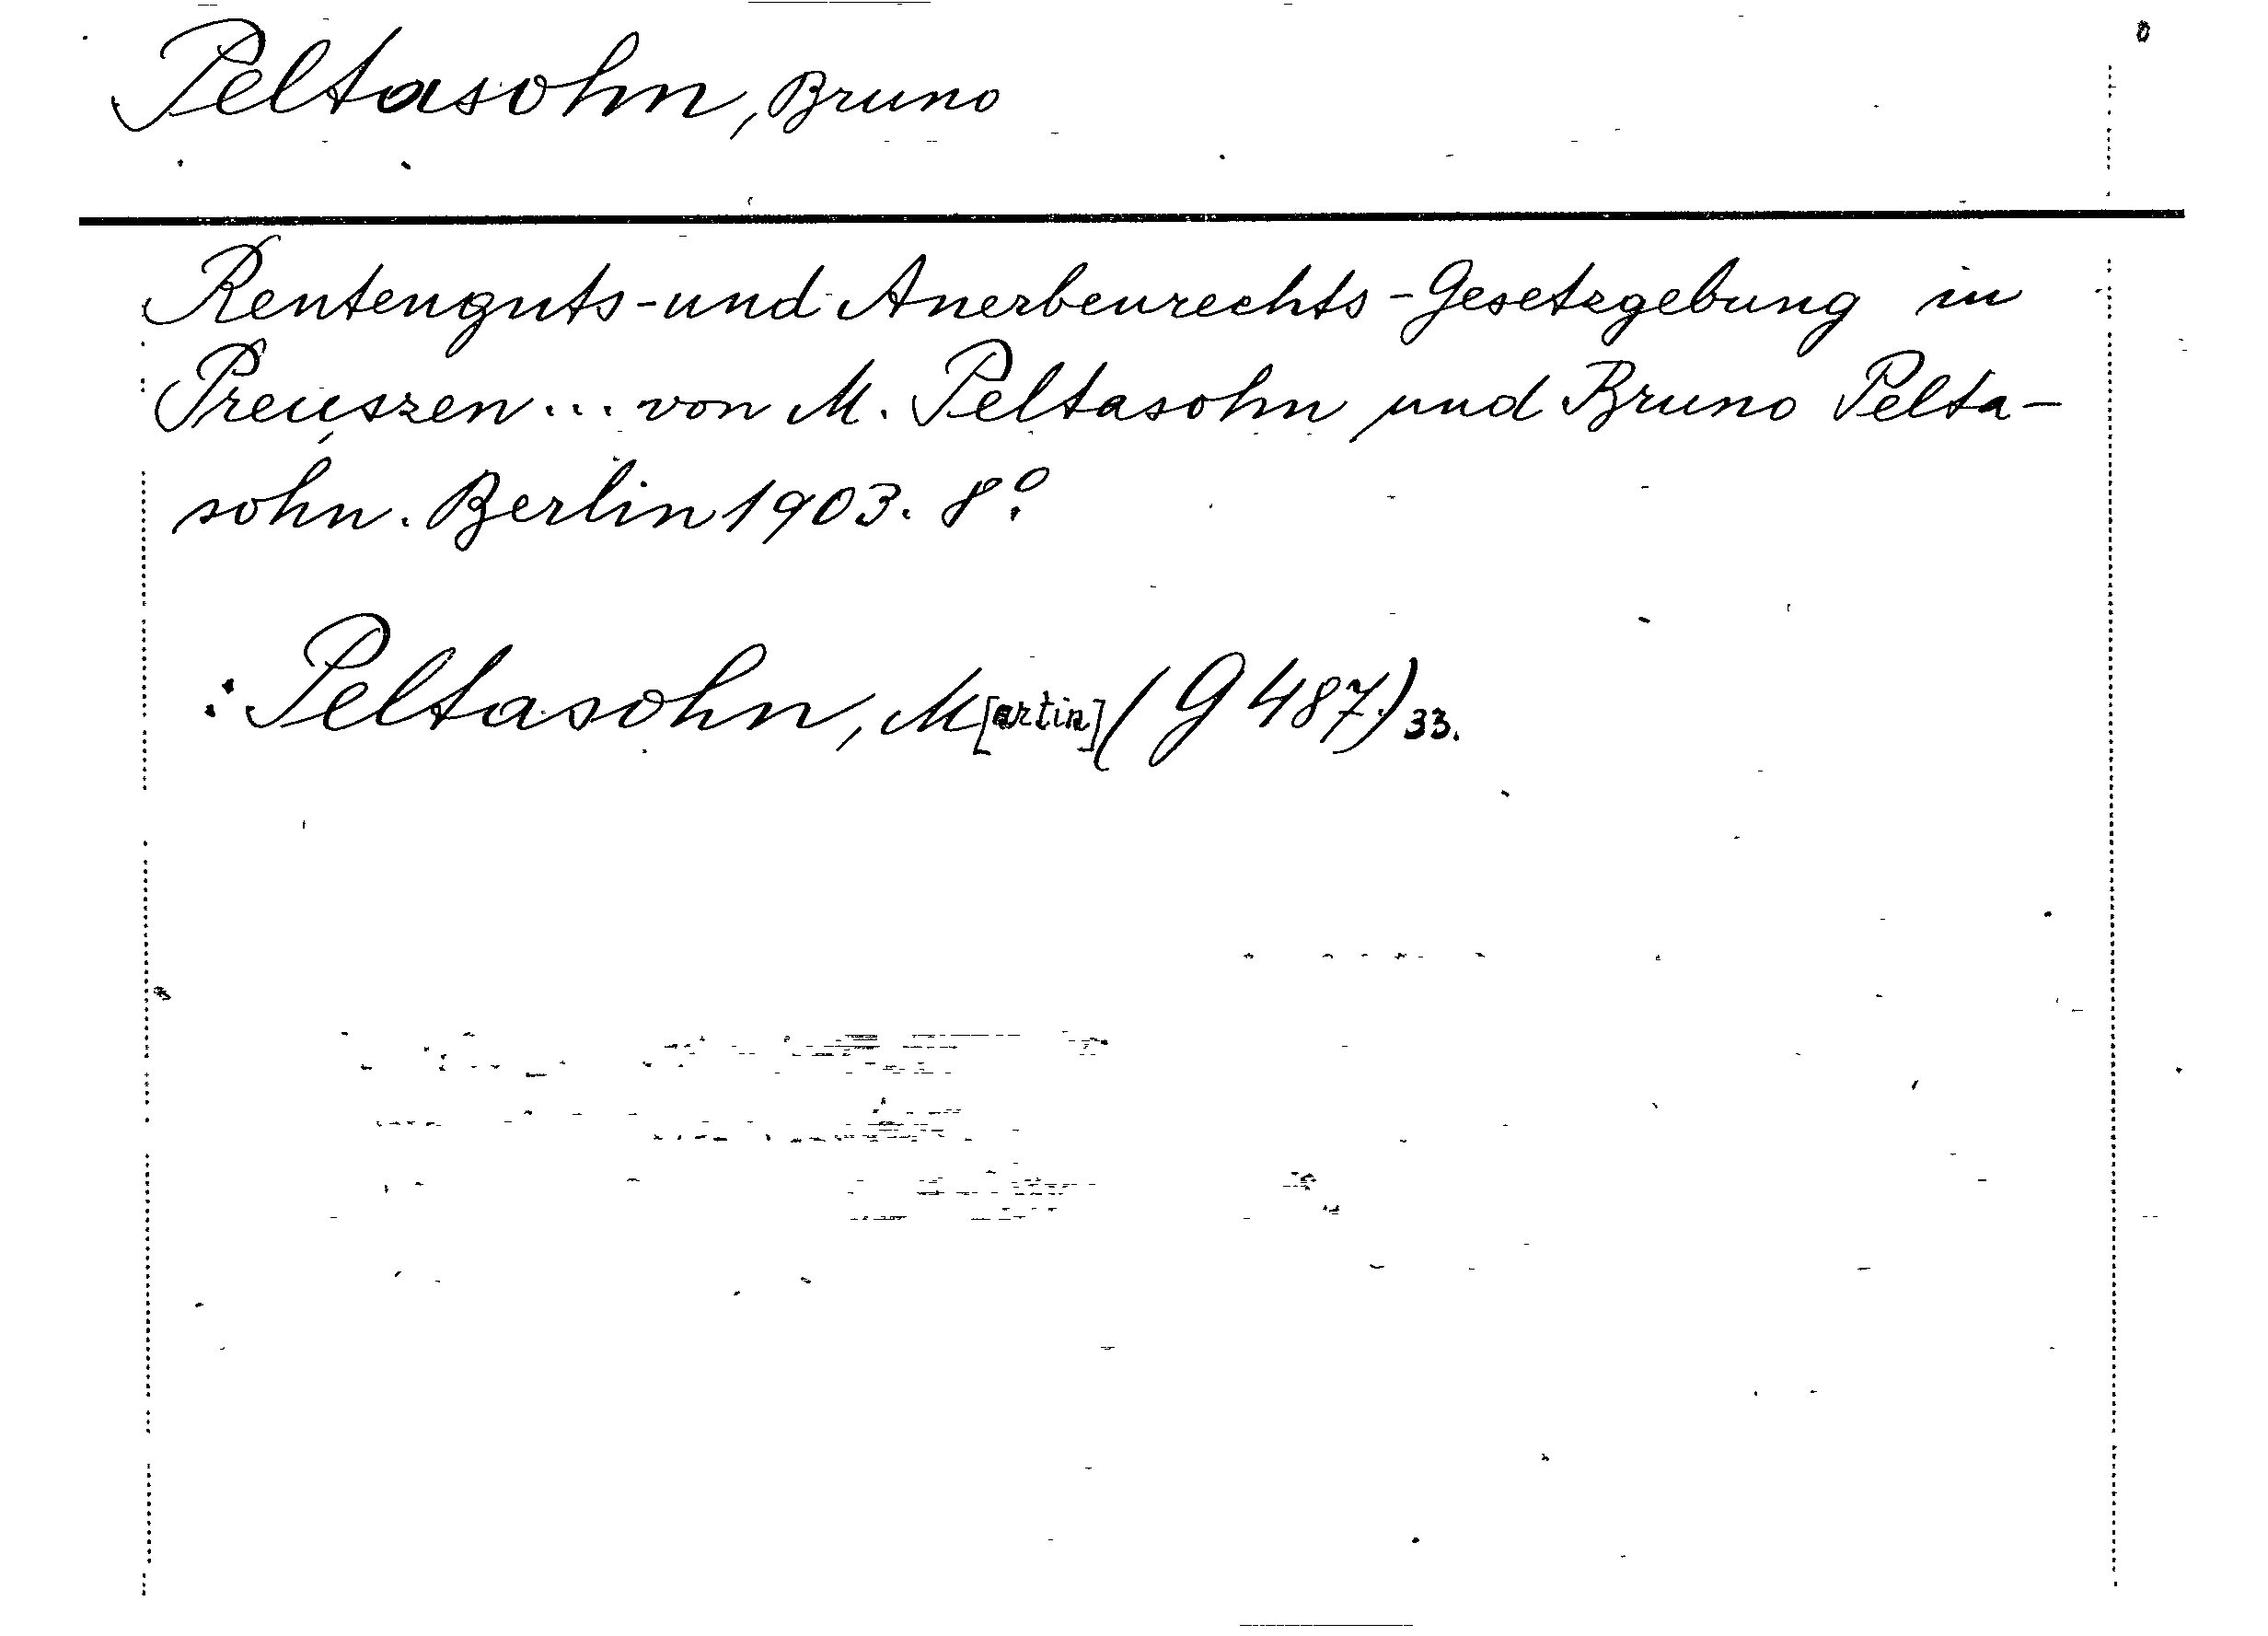 Peltasohn, Bruno
Rentenguts-und Anerbenrechts-Gesetzgebung in
Preuszen... von M. Peltasohn und Bruno Pelta-
sohn. Berlin 1903. 8°.
: Peltasohn, M[artin] (G 487.) 33.